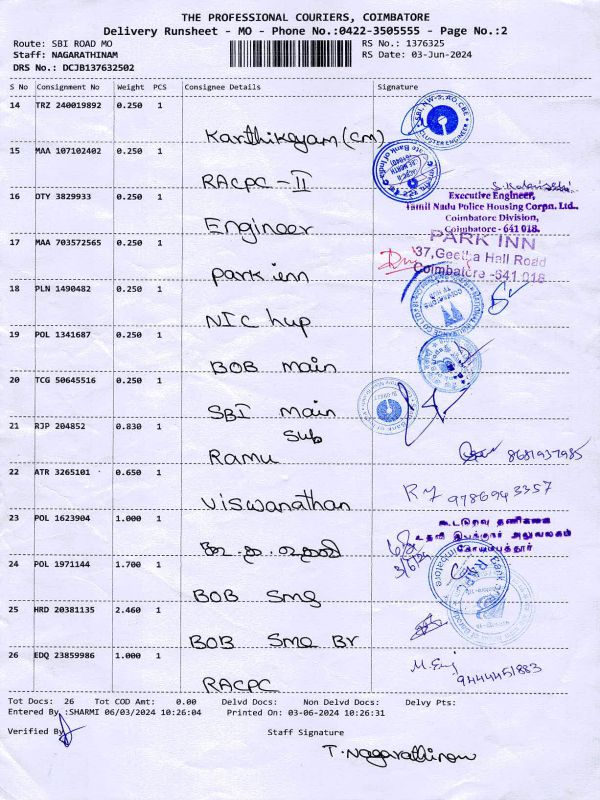 THE PROFESSIONAL COURIERS, COIMBATORE
Delivery Runsheet - MO - Phone No.:0422-3505555 - Page No.:2
Route: SBI ROAD MO RS No.: 1376325
Staff: NAGARATHINAM RS Date: 03-Jun-2024
DRS No.: DCJB137632502
S No Consignment No Weight PCS Consignee Details Signature
14 TRZ 240019892 0.250 1
CLUSTER ENGINEER
Karthikeyam (CM)
15 MAA 107102402 0.250 1
RACPC - II
16 OTY 3829933 0.250 1
Executive Engineer,
Tamil Nadu Police Housing Corpn. Ltd.,
Coimbatore Division,
Coimbatore - 641 018.
Engineer
17 MAA 703572565 0.250 1
PARK INN
37, Geetha Hall Road
Coimbatore -641 018
park inn
18 PLN 1490482 0.250 1
NIC hup
19 POL 1341687 0.250 1
BOB main
20 TCG 50645516 0.250 1
SBI main
21 RJP 204852 0.830 1
Sub
Ramu
8681937985
22 ATR 3265101 0.650 1
Viswanathan
9786943357
23 POL 1623904 1.000 1
கூட்டுறவு தணிக்கை
உதவி இயக்குநர் அலுவலகம்
கோயம்புத்தூர்
24 POL 1971144 1.700 1
BOB Sme
25 HRD 20381135 2.460 1
BOB Sme Br
26 EDQ 23859986 1.000 1
9444451883
RACPC
Tot Docs: 26 Tot COD Amt: 0.00 Delvd Docs: Non Delvd Docs: Delvy Pts:
Entered By :SHARMI 06/03/2024 10:26:04 Printed On: 03-06-2024 10:26:31
Verified By Staff Signature
T. Nagarathinam